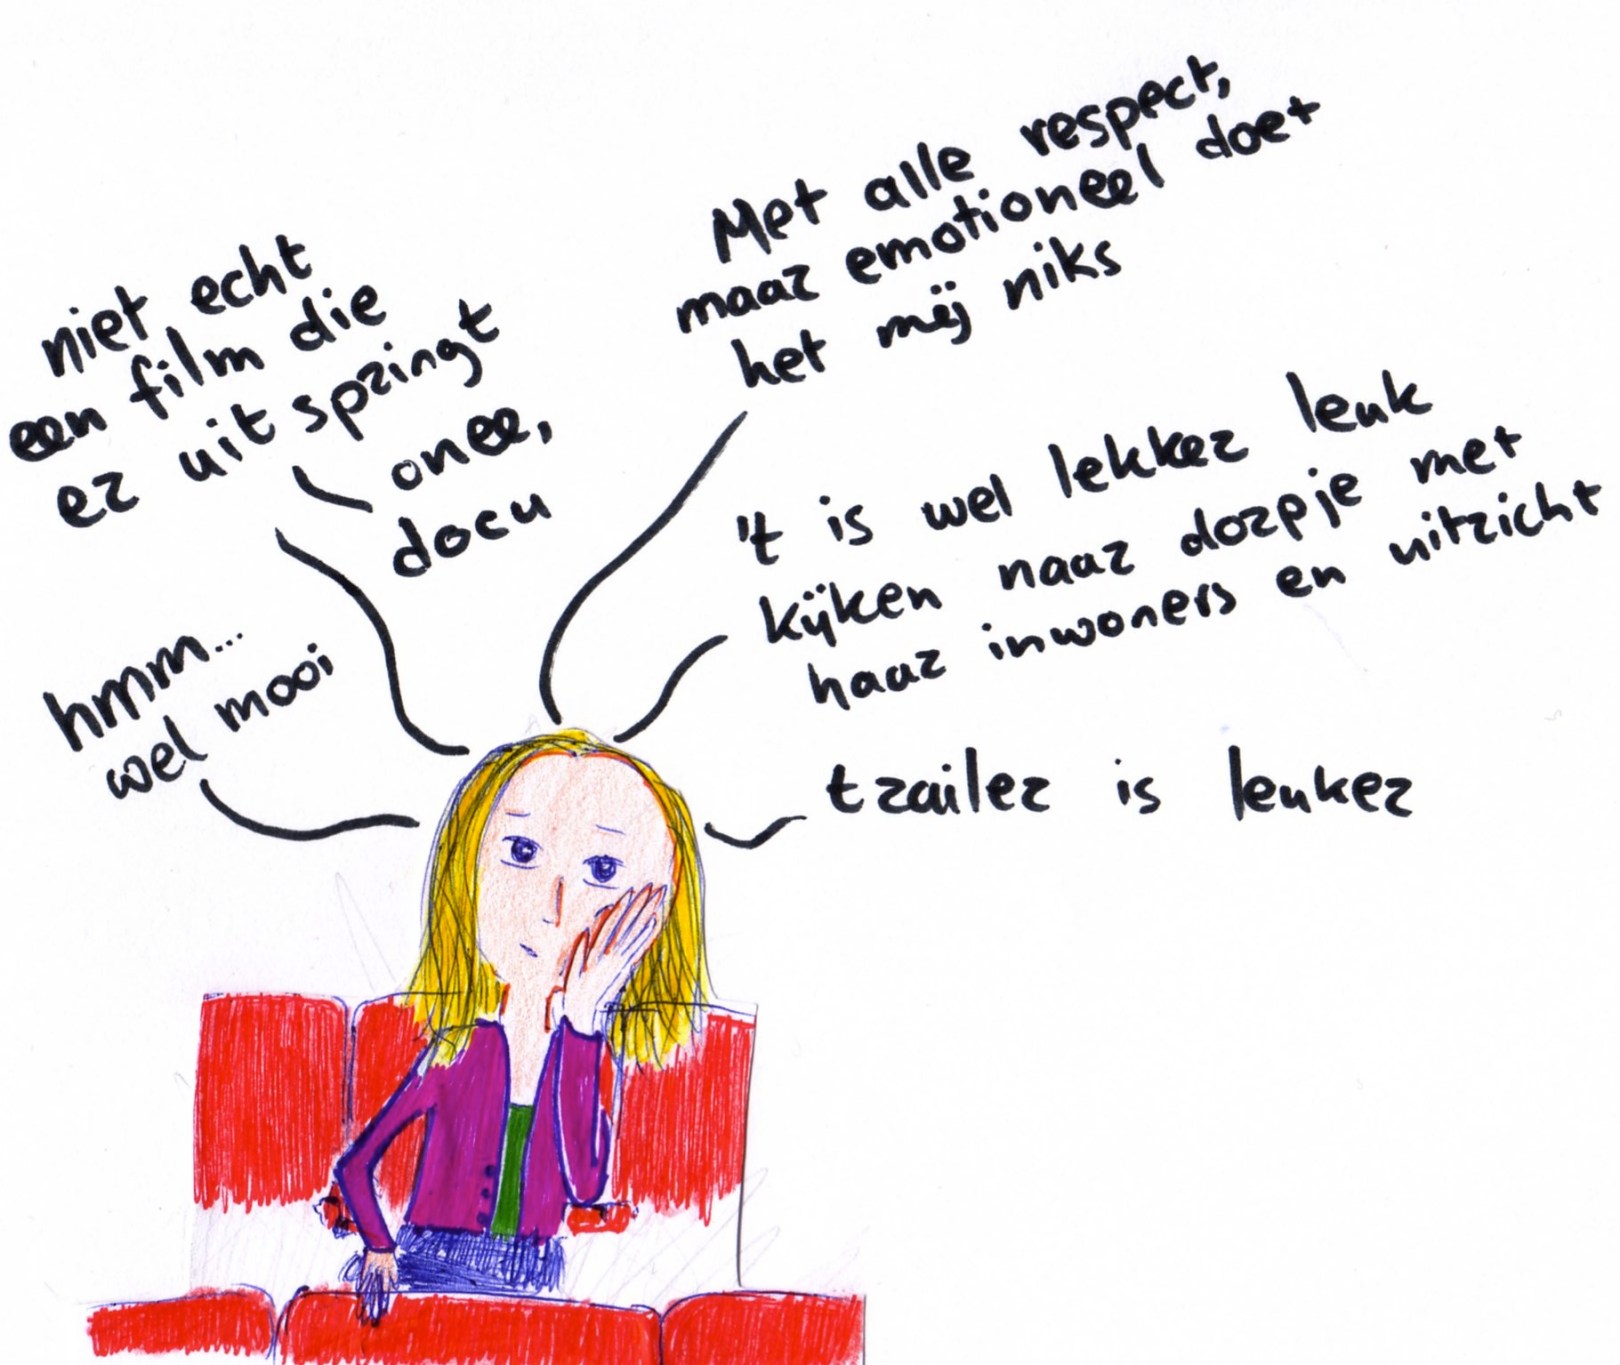 Met alle respect,
maar emotioneel doet
het mij niks
niet echt
een film die
er uit springt
onee,
docu
't is wel lekker leuk
kijken naar dorpje met
haar inwoners en uitzicht
hmm...
wel mooi
trailer is leuker